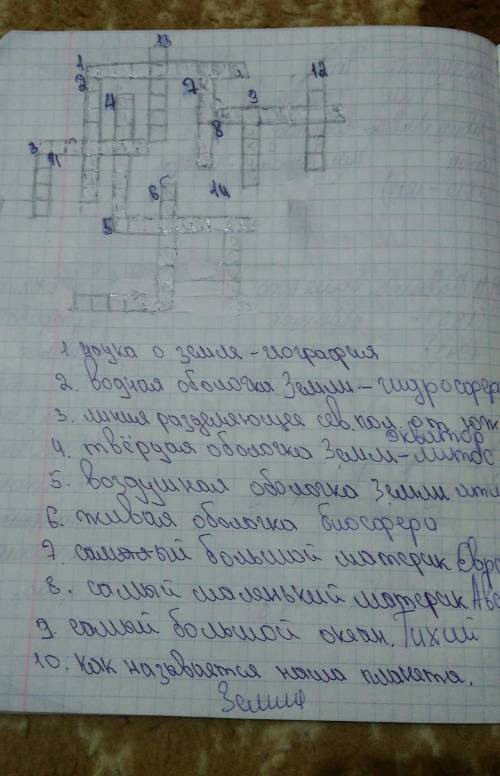 13
1 12
2 7
4 9
8
3
11
6 14
5
1. наука о земле - география
2. водная оболочка Земли - гидросфер
3. линия разделяющее сев. пол. от юж
экватор
4. твёрдая оболочка Земли - литос
5. воздушная оболочка Земли атм
6. живая оболочка биосфера
7. самый большой материк Евра
8. самый маленький материк Авс
9. самый большой океан. Тихий
10. как называется наша планета.
Земля